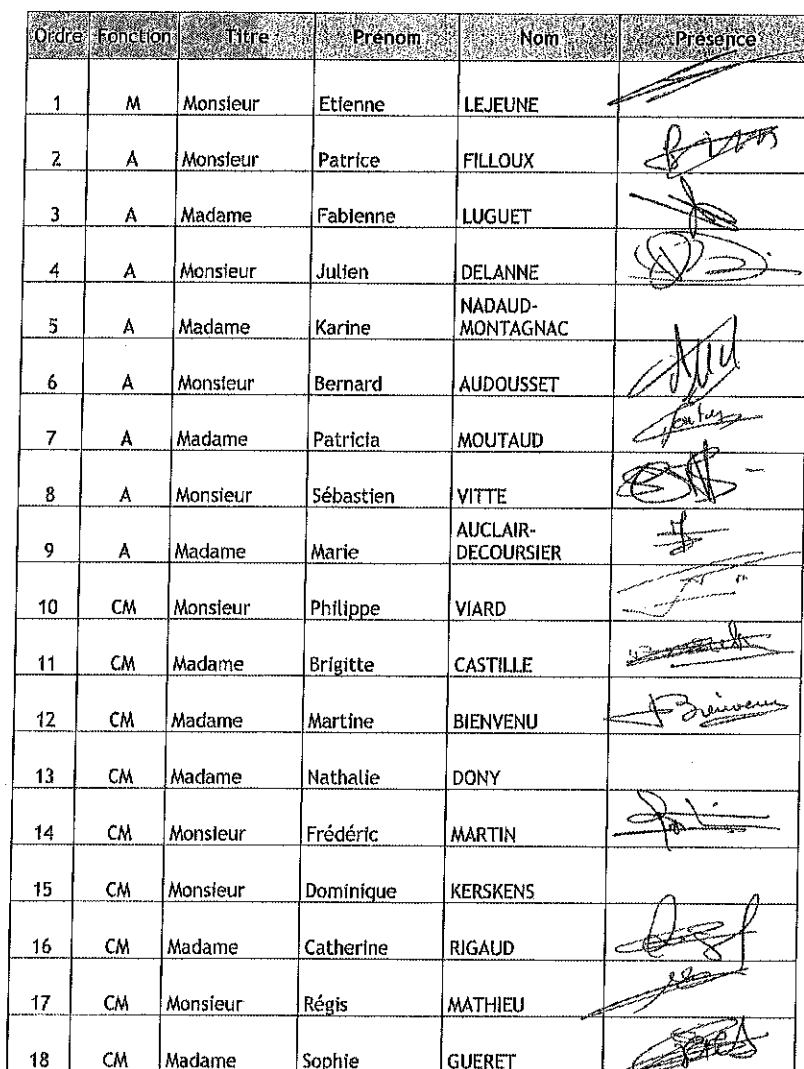 Ordre Fonction Titre Prénom Nom Présence
1 M Monsieur Etienne LEJEUNE
2 A Monsieur Patrice FILLOUX
3 A Madame Fabienne LUGUET
4 A Monsieur Julien DELANNE
5 A Madame Karine NADAUD-
MONTAGNAC
6 A Monsieur Bernard AUDOUSSET
7 A Madame Patricia MOUTAUD
8 A Monsieur Sébastien VITTE
9 A Madame Marie AUCLAIR-
DECOURSIER
10 CM Monsieur Philippe VIARD
11 CM Madame Brigitte CASTILLE
12 CM Madame Martine BIENVENU Bienvenu
13 CM Madame Nathalie DONY
14 CM Monsieur Frédéric MARTIN
15 CM Monsieur Dominique KERSKENS
16 CM Madame Catherine RIGAUD
17 CM Monsieur Régis MATHIEU
18 CM Madame Sophie GUERET